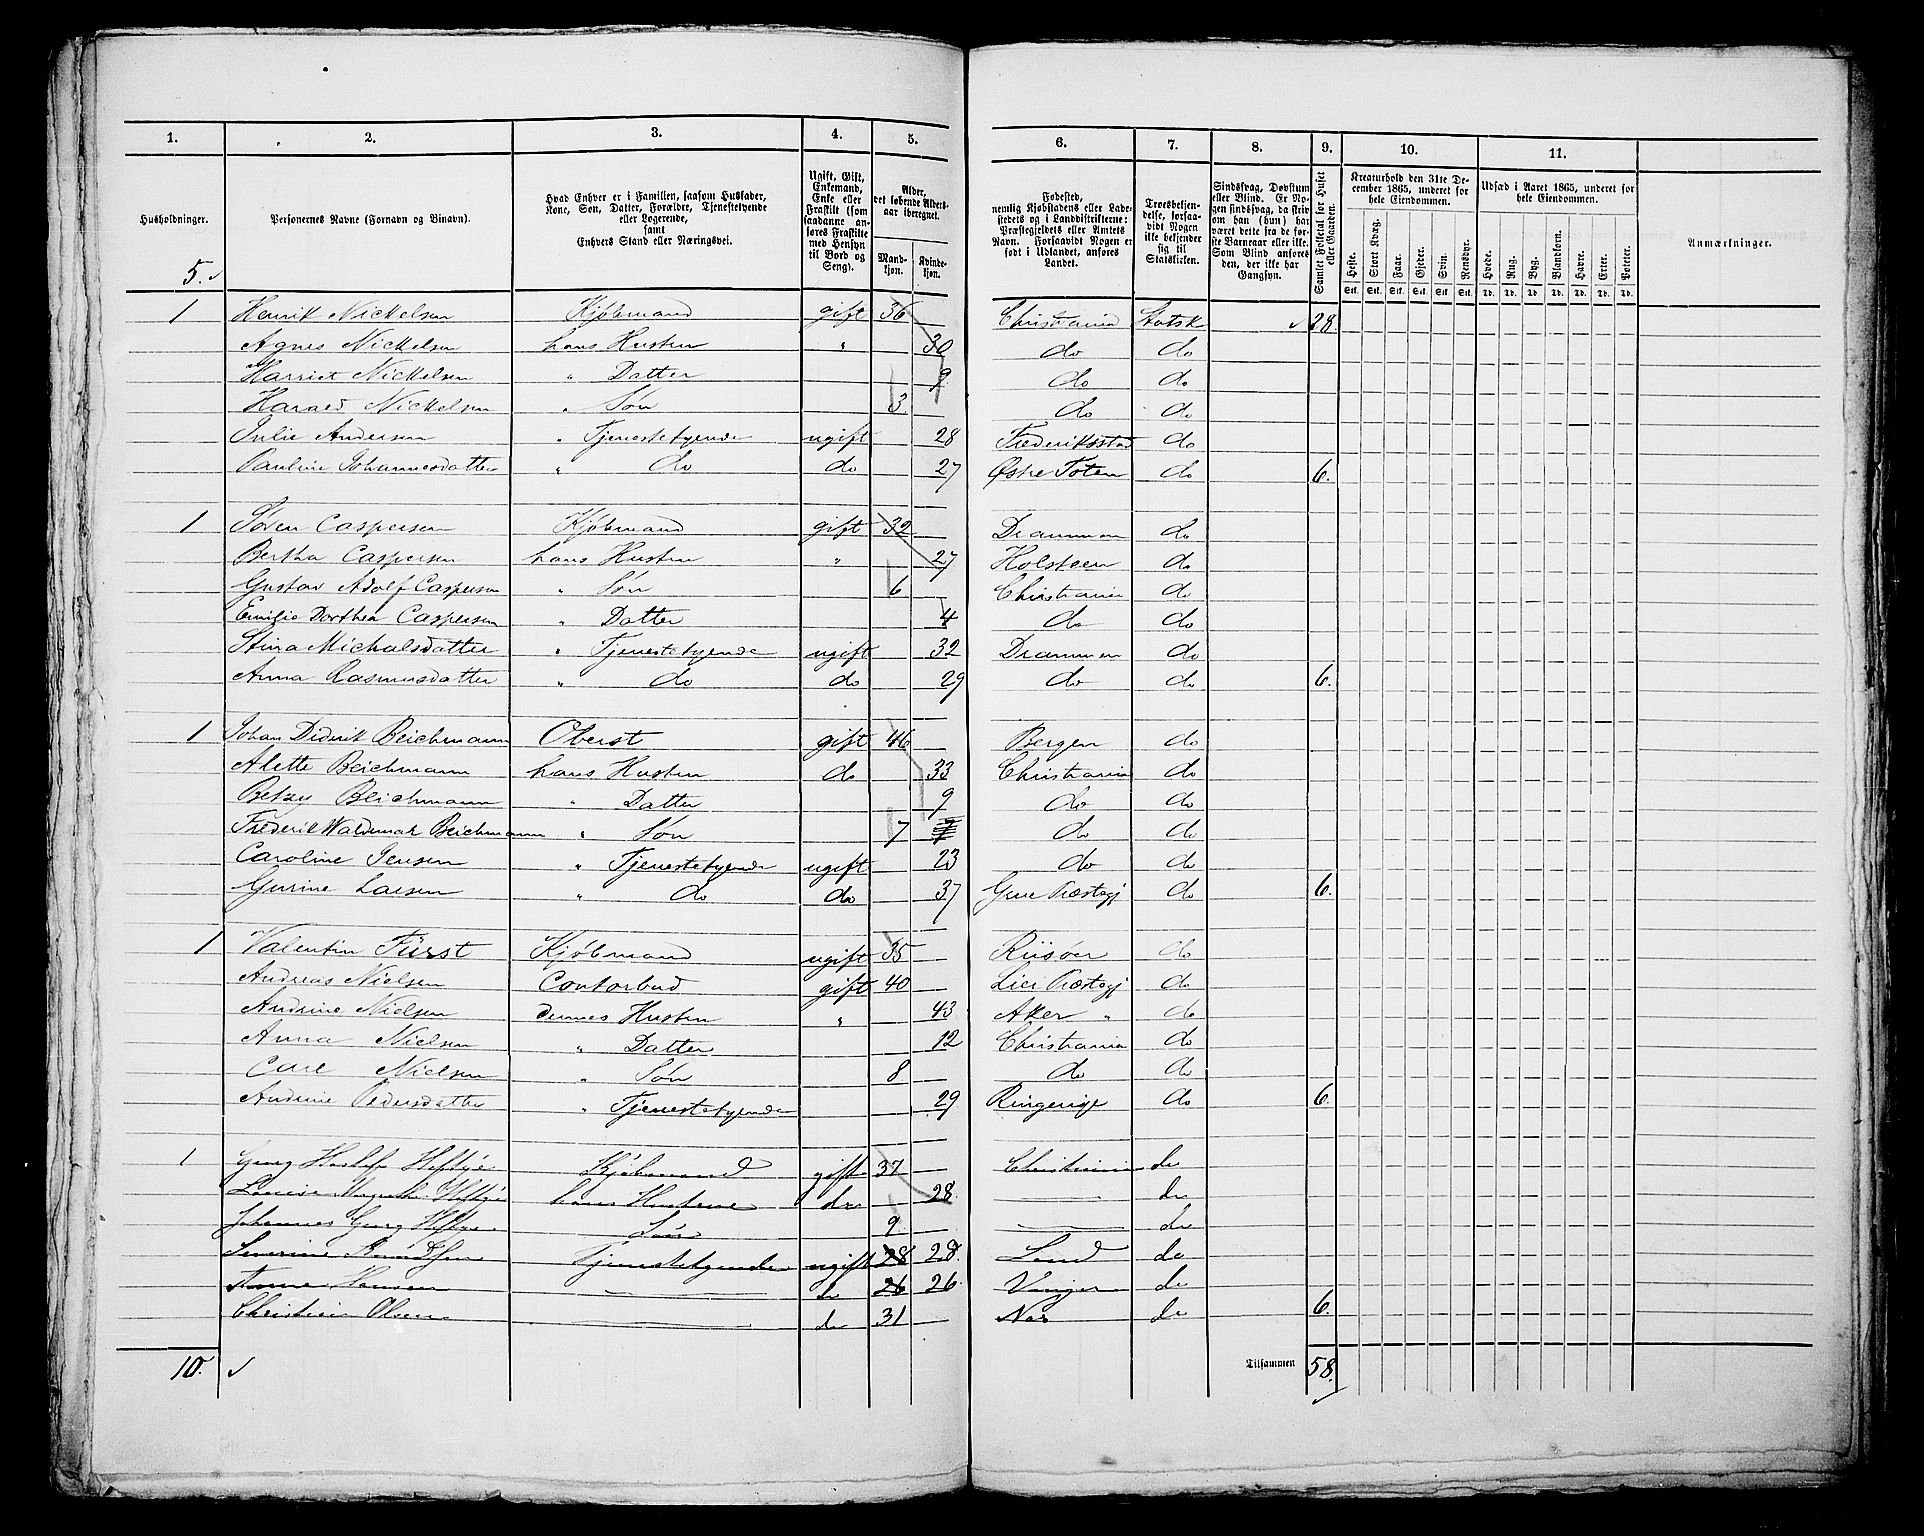 1. 2. 3. 4. 5. 6. 7. 8. 9. 10. 11.
Husholdninger. Personernes Navne (Fornavn og Binavn). Hvad Enhver er i Familien, saasom Husfader, Kone, Søn, Datter, Forældre, Tjenestetyende eller Logerende, samt Enhvers Stand eller Næringsvei. Ugift, Gift, Enkemand, Enke eller Fraskilt (som saadanne anføres Fraskilte med Hensyn til Bord og Seng). Alder, det løbende Aldersaar iberegnet. Mandkjøn. Kvindekjøn.
Fødested, nemlig Kjøbstadens eller Ladestedets og i Landdistrikterne: Præstegjeldets eller Amtets Navn. Forsaavidt Nogen er født i Udlandet, anføres Landet. Troesbekjendelse, forsaavidt Nogen ikke bekjender sig til Statskirken. Sindssvag, Døvstum eller Blind. Er Nogen sindssvag, da skrives om han (hun) har været dette fra de første Barneaar eller ikke. Som Blind anføres den, der ikke har Gangsyn. Samlet Folketal for Huset eller Gaarden.
Kreaturhold den 31te December 1865, underet for hele Eiendommen. Heste. Stort Kvæg. Faar. Gjeder. Svin. Rensdyr. Stk. Stk. Stk. Stk. Stk. Stk.
Udsæd i Aaret 1865, underet for hele Eiendommen. Hvede. Rug. Byg. Blandkorn. Havre. Erter. Poteter. Td. Td. Td. Td. Td. Td. Td.
Anmærkninger.
5.
1 Henrik Nickelsen Kjøbmand gift 36 Christiania Statsk 28
Agnes Nickelsen hans Hustru " 30 do do
Harriet Nickelsen " Datter 9 do do
Harald Nickelsen " Søn 3 do do
Julie Andersen " Tjenestetyende ugift 28 Frederiksstad do
Pauline Johannesdatter " do do 27 Østre Toten do 6.
1 Søren Caspersen Kjøbmand gift 32 Drammen do
Bertha Caspersen hans Hustru " 27 Holsteen do
Gustav Adolf Caspersen " Søn 6 Christiania do
Emilie Dorthea Caspersen " Datter 4 do do
Stina Michalsdatter " Tjenestetyende ugift 32 Drammen do
Anna Rasmusdatter " do do 29 do do 6.
1 Johan Diderik Beichmann Oberst gift 46 Bergen do
Alette Beichmann hans Hustru do 33 Christiania do
Betzy Beichmann " Datter 9 do do
Frederik Waldemar Beichmann " Søn 7 7 do do
Caroline Jensen " Tjenestetyende ugift 23 do do
Gurine Larsen " do do 37 Grue Præstegj do 6.
1 Valentin Fürst Kjøbmand ugift 35 Riisøer do
Andreas Nielsen Contorbud gift 40 Lier Præstegj do
Andrine Nielsen dennes Hustru " 43 Aker " do
Anna Nielsen " Datter 12 Christiania do
Carl Nielsen " Søn 8 do do
Andrine Pedersdatter " Tjenestetyende 29 Ringerige do 6.
1 Georg Heftye Kjøbmand gift 37 Christiania do
Louise Heftye hans Hustrue do 28. do
Johannes Georg Heftye Søn 9 do
Severine Tjenestetyende ugift 28 28. Land do
Anna Hansen do 26 26. Vanger do
Christian Olsen do 31 Næs do 6.
10. Tilsammen 58.